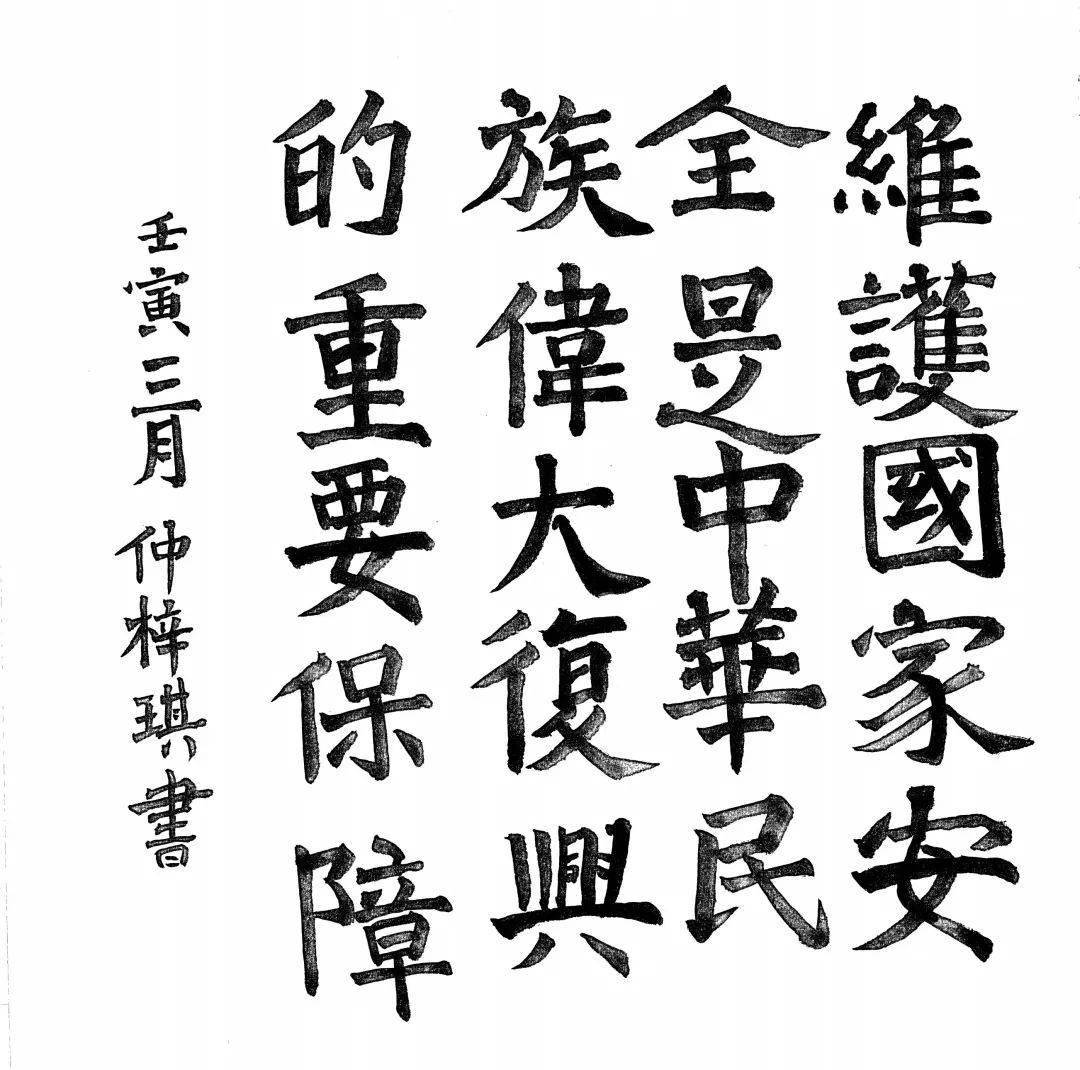 維護國家安
全是中華民
族偉大復興
的重要保障
壬寅三月仲梓琪書